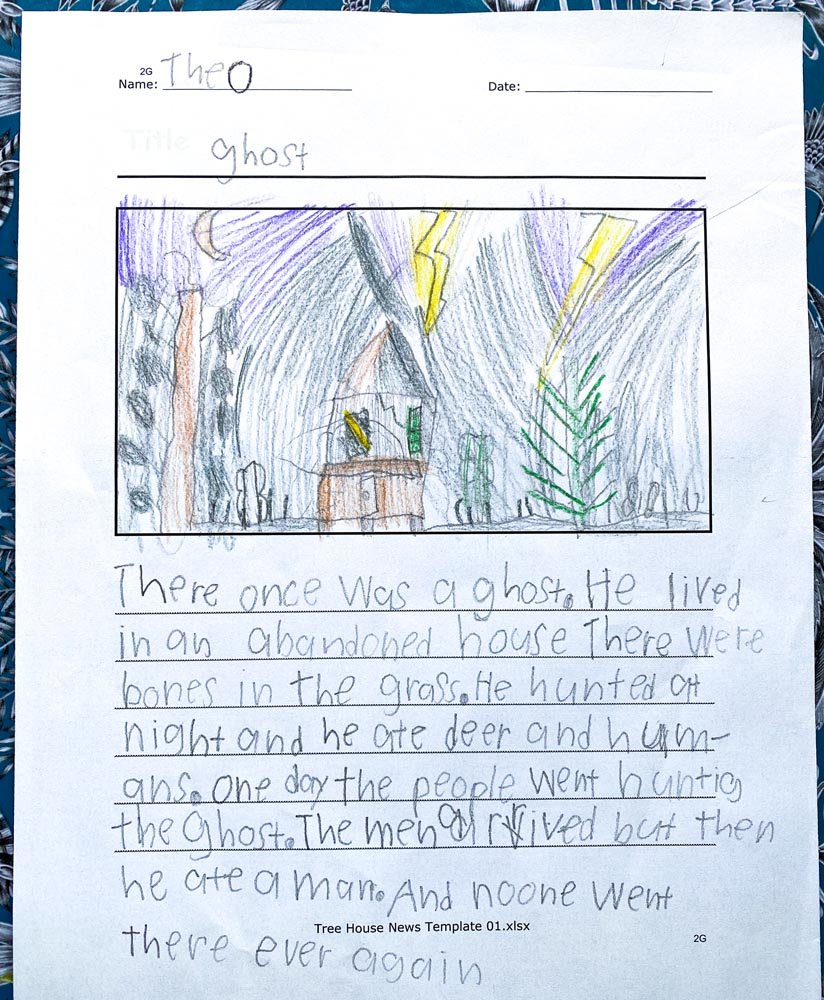 2G
Name: Theo
Date:
Title
ghost
There once was a ghost. He lived
in an abandoned house There were
bones in the grass. He hunted at
night and he ate deer and hum-
ans. One day the people went huntig
the ghost. The men arrived but then
he ate a man. And noone went
Tree House News Template 01.xlsx
2G
there ever again